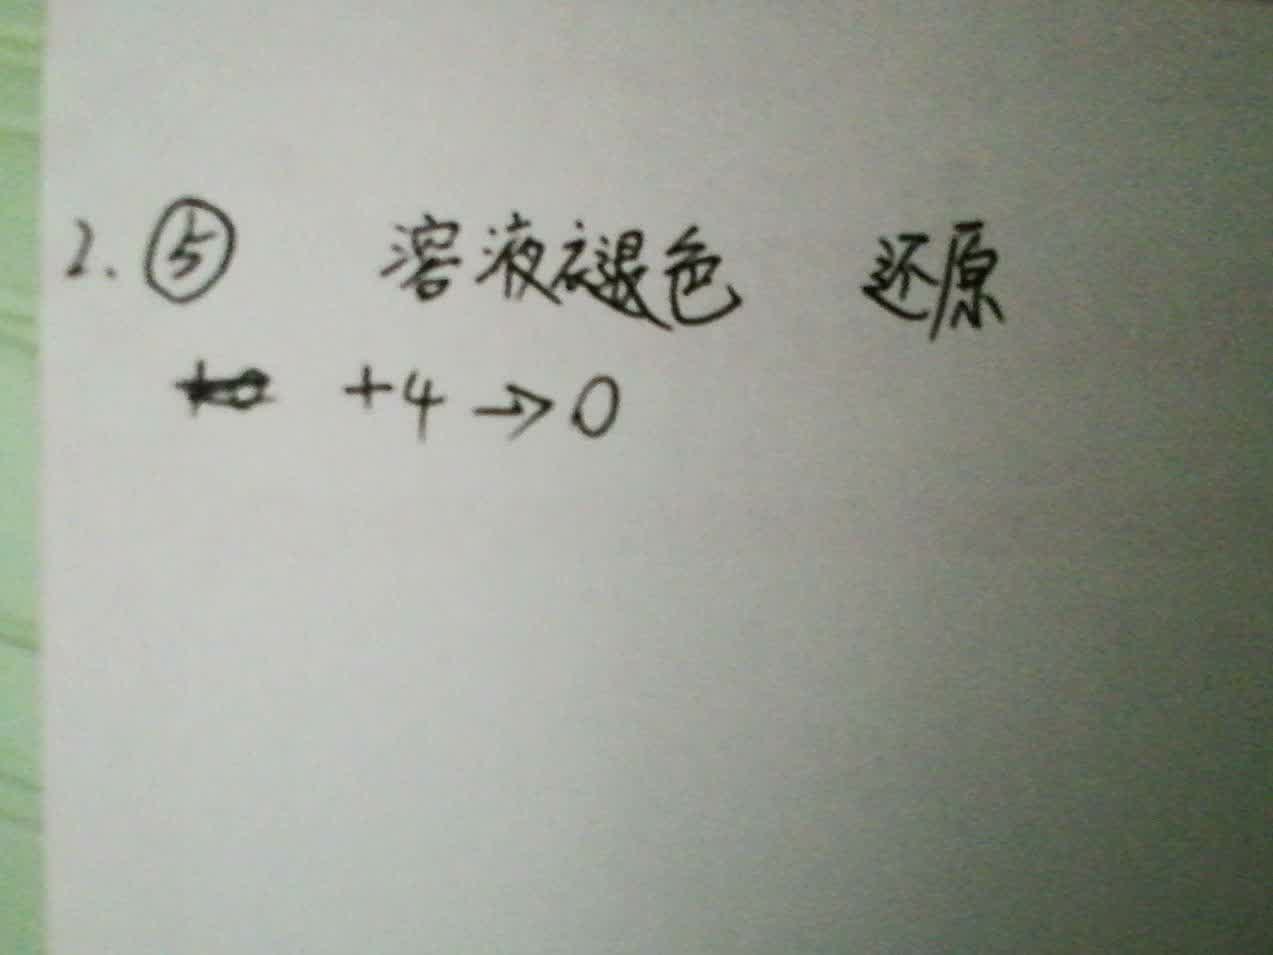 2. ⑤ 溶液褪色 还原
+4 → 0